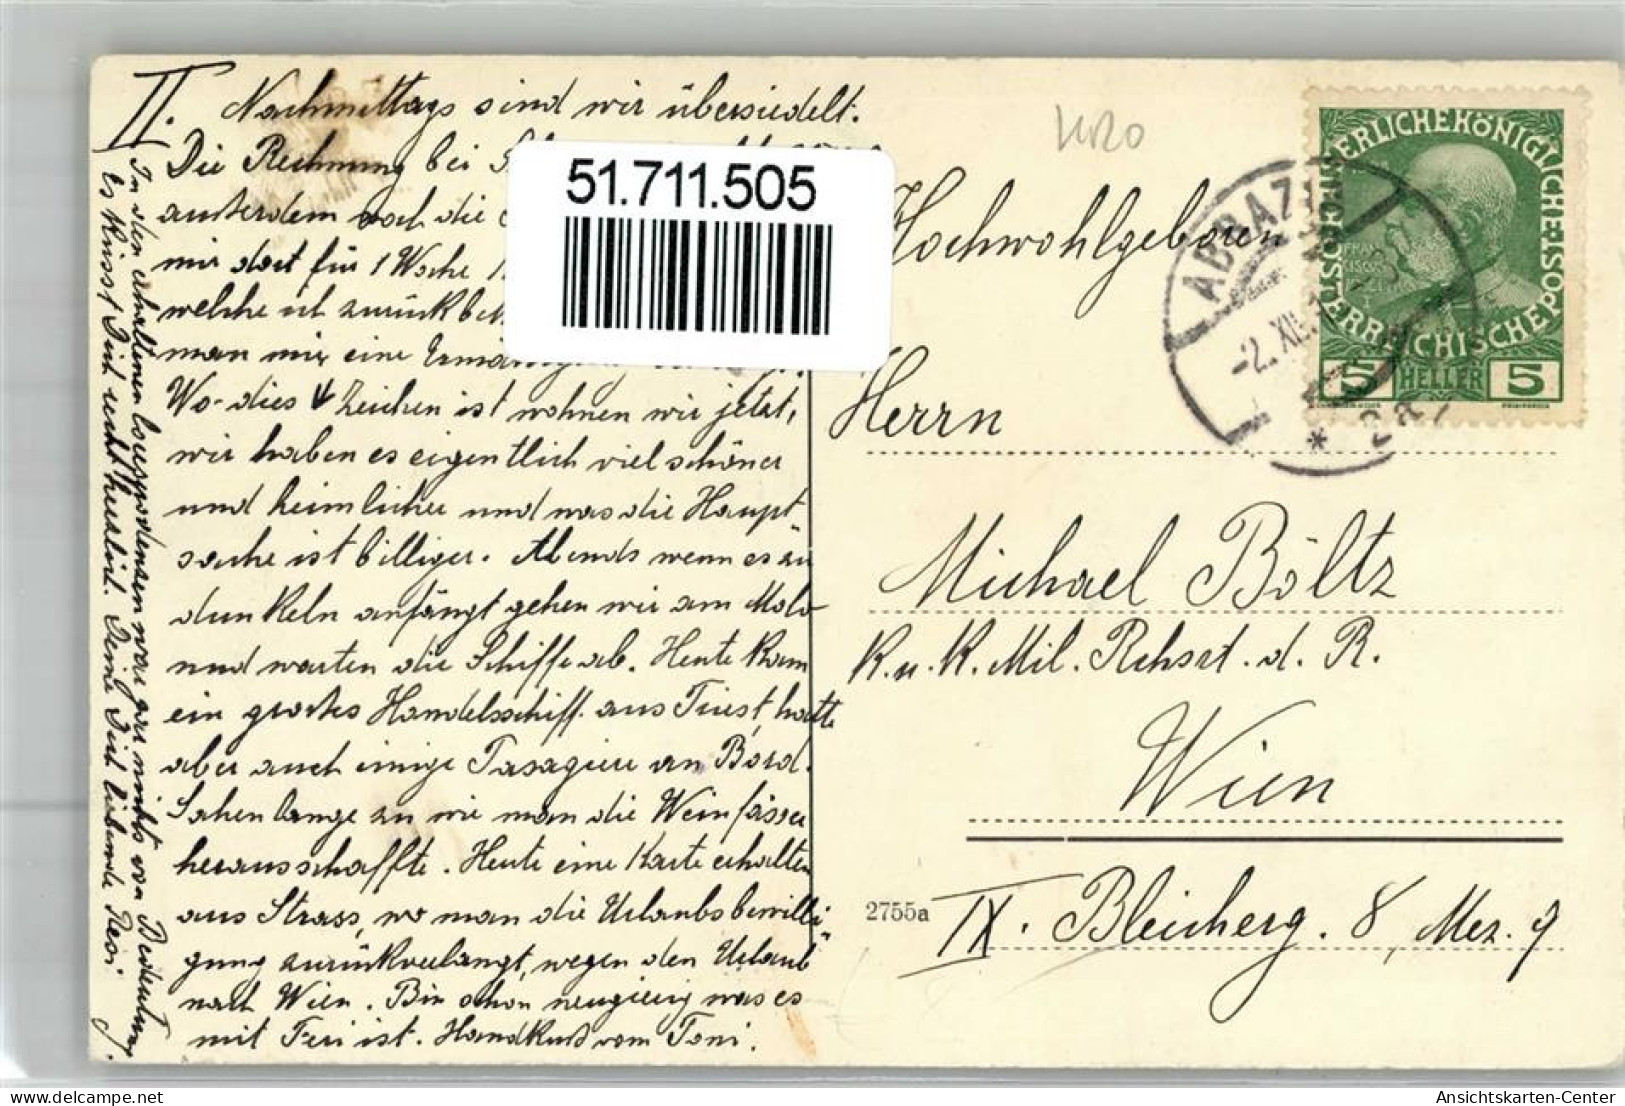 II. Nachmittags sind wir übersiedelt.
Die Rechnung bei
ausserdem noch die
mir dort für 1 Woche
welche ich zurückbe
man mir eine Ermässigung
Wo dies ↓ Zeichen ist wohnen wir jetzt,
wir haben es eigentlich viel schöner
und heimlicher und was die Haupt-
sache ist billiger. Abends wenn es zu
dunkeln anfängt gehen wir am Molo
und warten die Schiffe ab. Heute kam
ein grosses Handelsschiff aus Triest, hatte
aber auch einige Passagiere an Bord.
Sahen lange zu wie man die Weinfässer
herausschaffte. Heute eine Karte erhalten
aus Strass, wo man die Urlaubsbewilli-
gung zurückverlangt, wegen den Urlaub
nach Wien. Bin schon neugierig was es
mit Feri ist. Handkuß vom Toni.
In den erhaltenen Couspodenzen war gar nichts von Bedeutung.
Es küsst Dich recht herzlich Deine Dich liebende Resi
51.711.505
Hochwohlgeboren
Herrn
Michael Böltz
K. u. K. Mil. Rchsrt. d. R.
Wien
IX. Bleicherg. 8, Mez. 9
2755a
ABBAZIA
-2. XII.
* 2a
KAISERLICHE KÖNIGLICHE ÖSTERREICHISCHE POST
5 HELLER 5
Ansichtskarten-Center